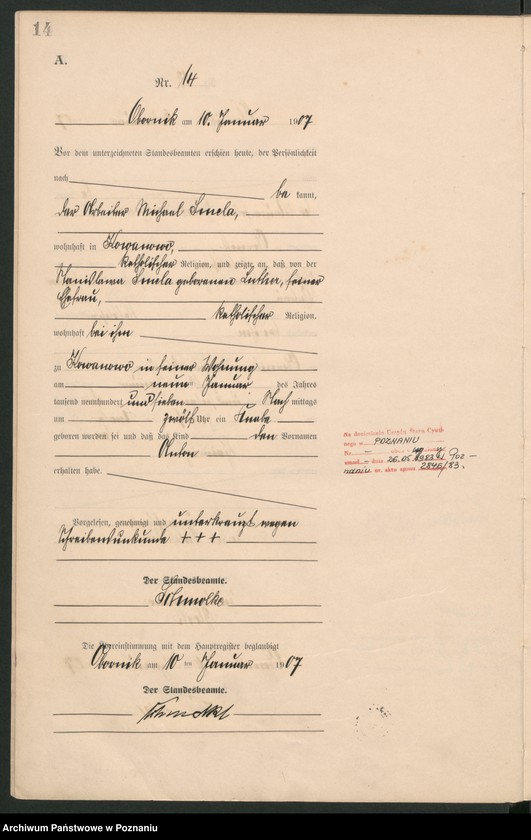 14
A.
Nr. 14
Obornik am 10. Januar 1907
Vor dem unterzeichneten Standesbeamten erschien heute, der Persönlichkeit
nach be kannt,
der Arbeiter Michael Smela,
wohnhaft in Kowanowo,
katholischer Religion, und zeigte an, daß von der
Stanislawa Smela geborenen, seiner
Ehefrau,
katholischer Religion,
wohnhaft bei ihm
zu Kowanowo in seiner Wohnung
am neun Januar des Jahres
tausend neunhundert und sieben Nach mittags
um zwölf Uhr ein Knabe
geboren worden sei und daß das Kind den Vornamen
Anton
erhalten habe.
Vorgelesen, genehmigt und unterkreuzt wegen
Schreibensunkunde + + +
Der Standesbeamte.
Die Übereinstimmung mit dem Hauptregister beglaubigt
Obornik am 10 ten Januar 1907
Der Standesbeamte.
Urzędu Stanu Cywil
nego w POZNANIU
dnia 26.05.1983 Poz-
naniu nr. aktu zgonu 2846/83.
Archiwum Państwowe w Poznaniu